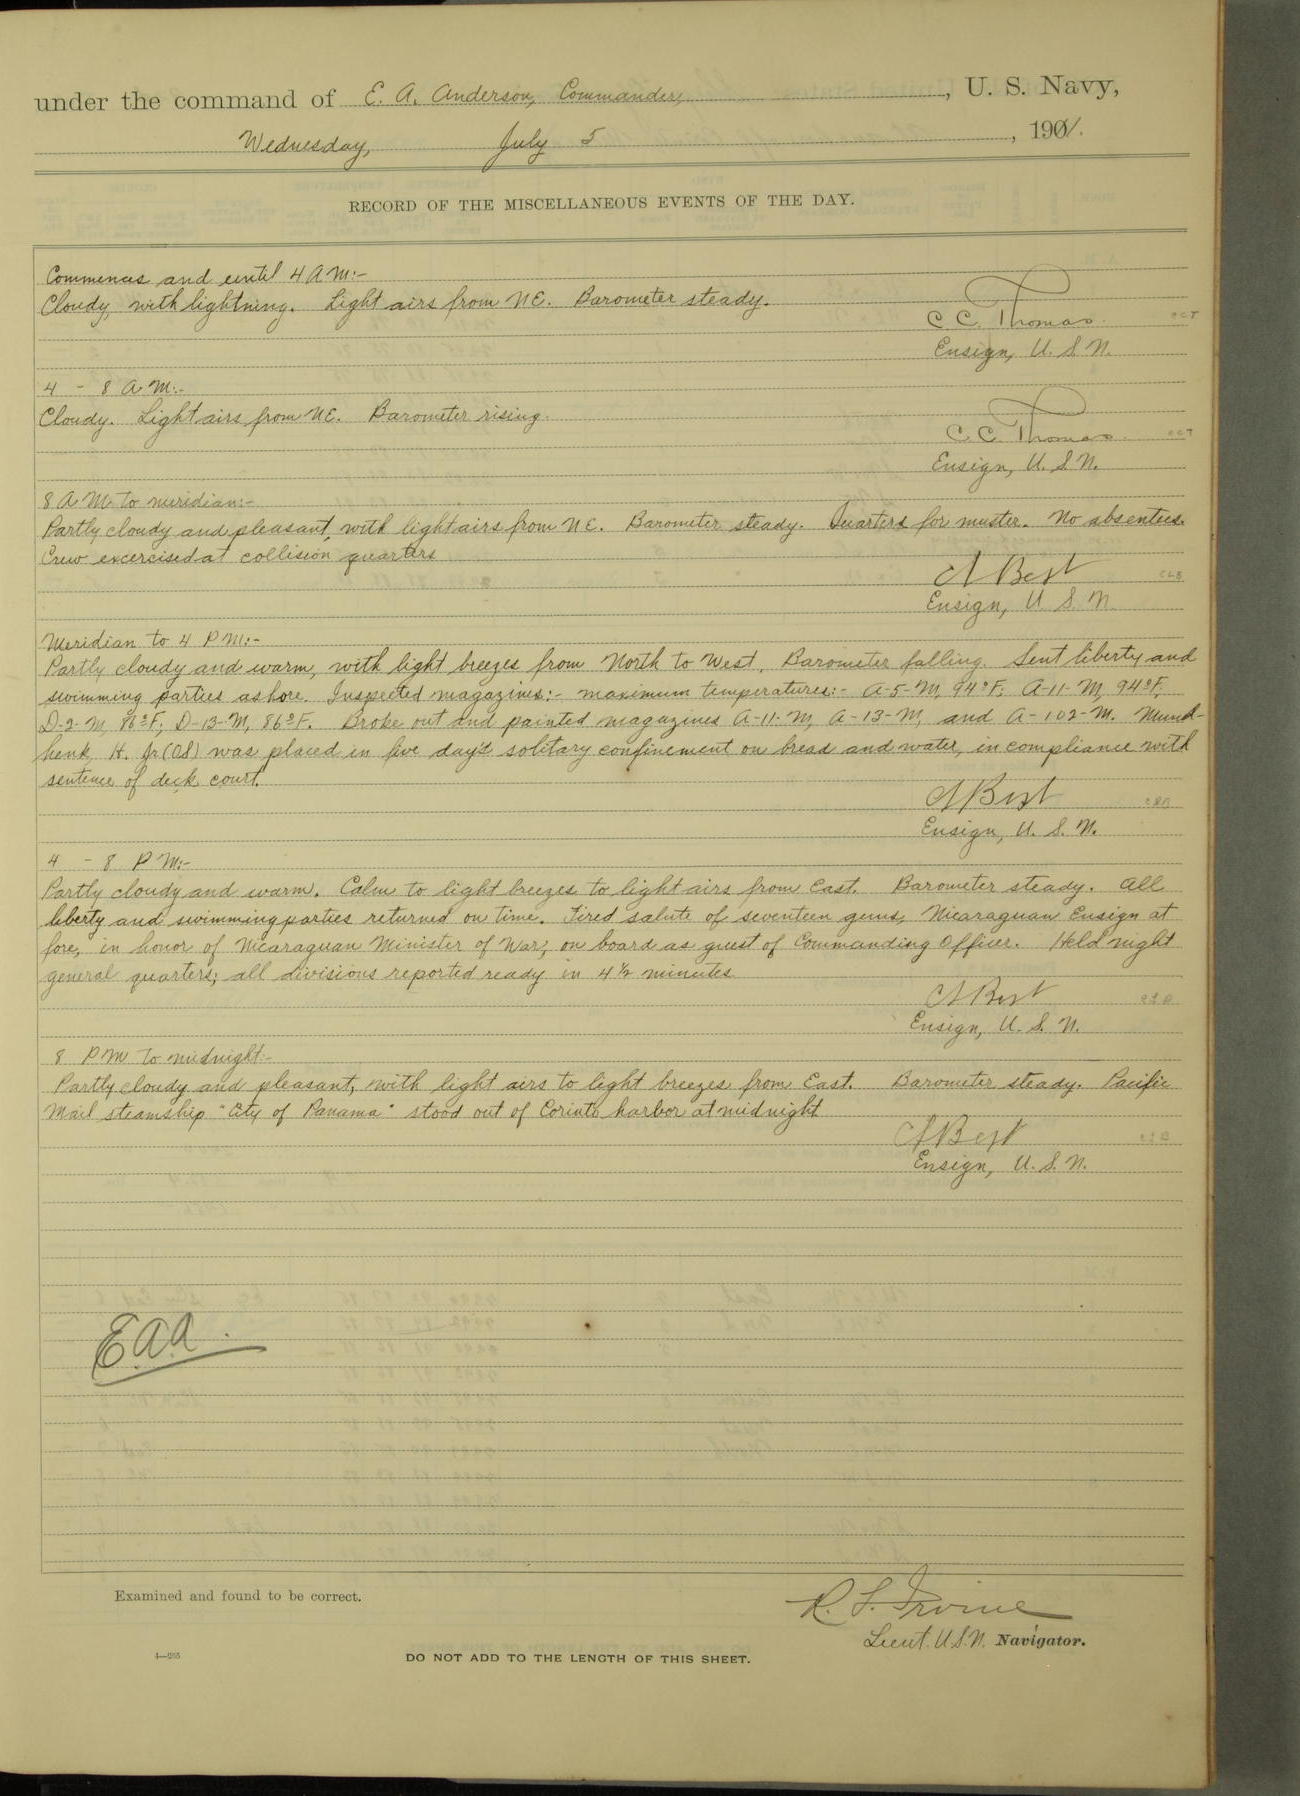 under the command of E. A. Anderson, Commander, U. S. Navy,
Wednesday, July 5, 1901.
RECORD OF THE MISCELLANEOUS EVENTS OF THE DAY.
Commences and until 4 A M:-
Cloudy, with lightning. Light airs from NE. Barometer steady.
C. C. Thomas
CCT
Ensign, U. S. N.
4 - 8 A M:-
Cloudy. Light airs from NE. Barometer rising.
C. C. Thomas
CCT
Ensign, U. S. N.
8 A M to meridian:-
Partly cloudy and pleasant, with light airs from NE. Barometer steady. Quarters for muster. No absentees.
Crew excercised at collision quarters
C L Best
CLB
Ensign, U. S. N.
Meridian to 4 P M:-
Partly cloudy and warm, with light breezes from North to West. Barometer falling. Sent liberty and
swimming parties ashore. Inspected magazines:- maximum temperatures:- A-5-M, 94°F; A-11-M, 94°F;
D-2-M, 86°F; D-13-M, 86°F. Broke out and painted magazines A-11-M, A-13-M, and A-102-M. Mund-
henk, H. Jr (OS) was placed in five day's solitary confinement on bread and water, in compliance with
sentence of deck court.
C L Best
CLB
Ensign, U. S. N.
4 - 8 P M:-
Partly cloudy and warm. Calm to light breezes to light airs from East. Barometer steady. All
liberty and swimming parties returned on time. Fired salute of seventeen guns, Nicaraguan Ensign at
fore, in honor of Nicaraguan Minister of War, on board as guest of Commanding Officer. Held night
general quarters; all divisions reported ready in 4 ½ minutes
C L Best
CLB
Ensign, U. S. N.
8 P M to midnight:-
Partly cloudy and pleasant, with light airs to light breezes from East. Barometer steady. Pacific
Mail steamship "City of Panama" stood out of Corinto harbor at midnight
C L Best
CLB
Ensign, U. S. N.
E.A.A.
Examined and found to be correct.
R. L. Irvine
Lieut. U.S.N. Navigator.
DO NOT ADD TO THE LENGTH OF THIS SHEET.